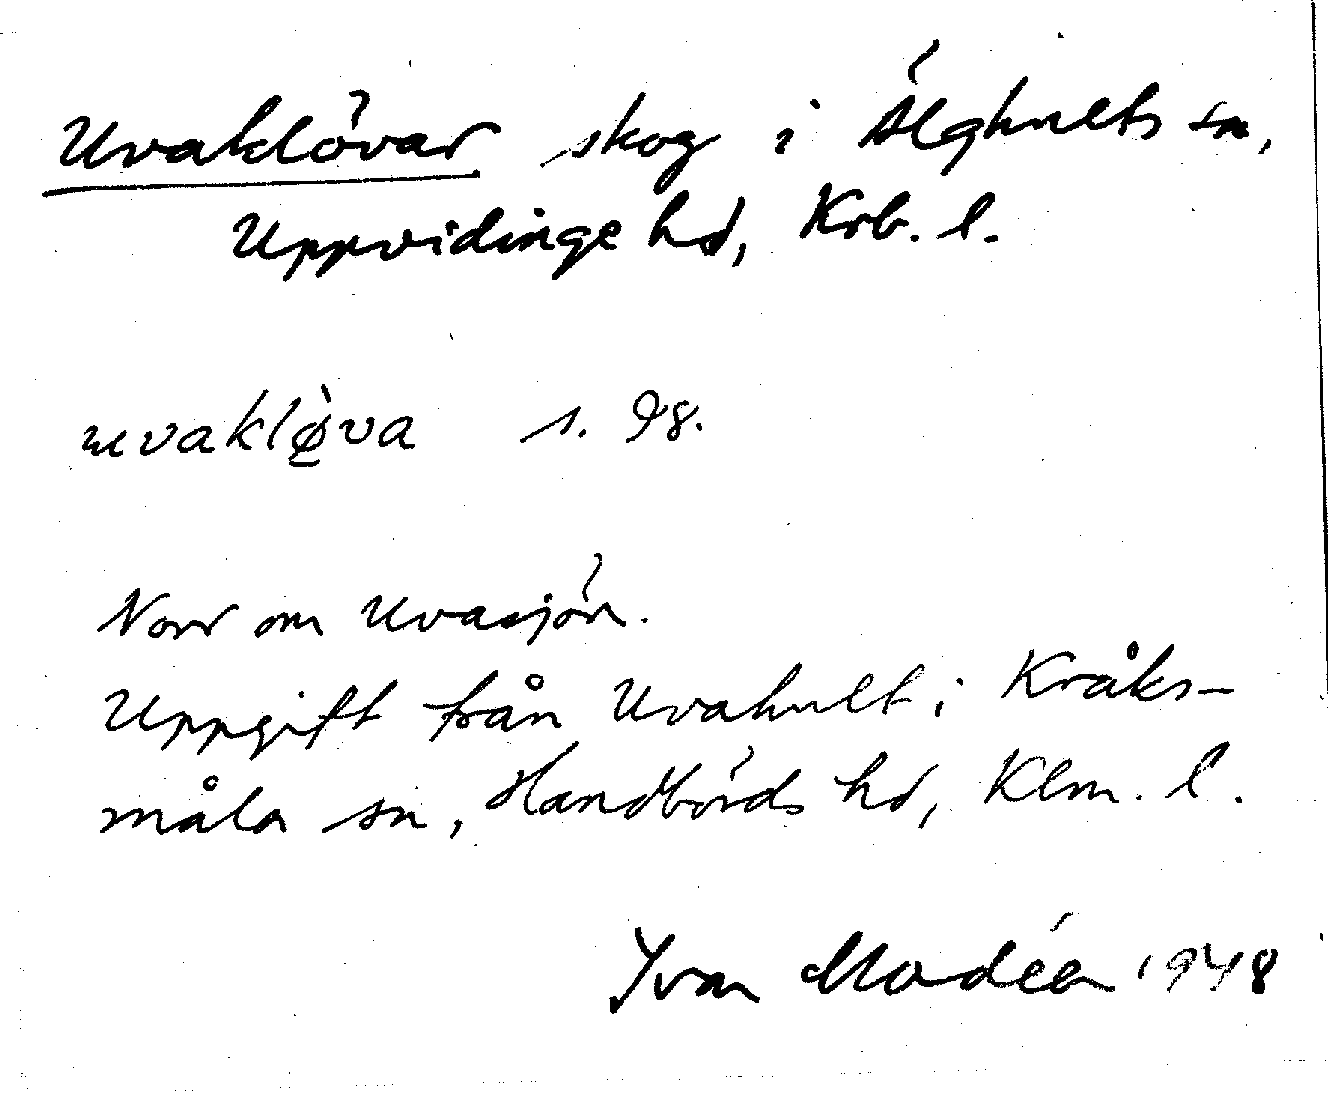 Uvaklövar skog i Älghults sn,
Uppvidinge hd, Krb. l.
uvaklø̠̀va s. 98.
Norr om Uvasjön.
Uppgift från Uvahult i Kråks-
måla sn, Handbörds hd, Klm. l.
Ivar Modéer 1948